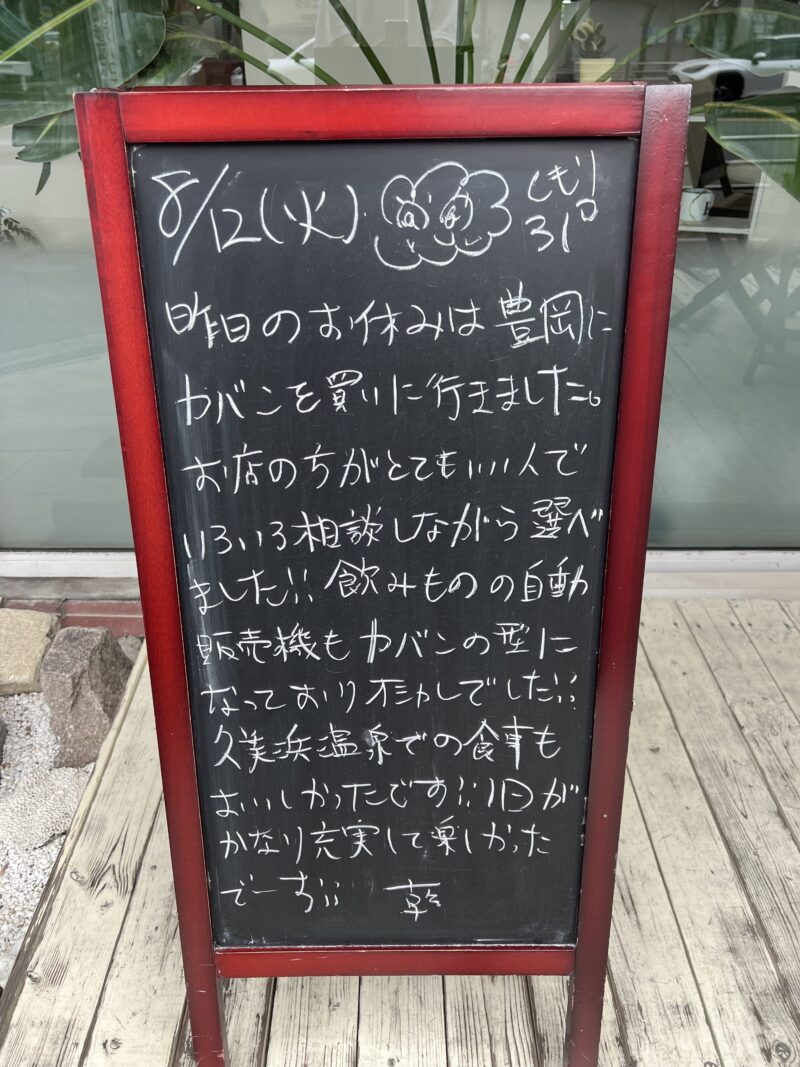 8/12(火) くもり
31°
昨日のお休みは豊岡に
カバンを買いに行きました。
お店の方がとてもいい人で
いろいろ相談しながら選べ
ました!! 飲みものの自動
販売機もカバンの型に
なっており楽しでした!!
久美浜温泉での食事も
おいしかったです!! 1日が
かなり充実して楽しかった
でーす!!